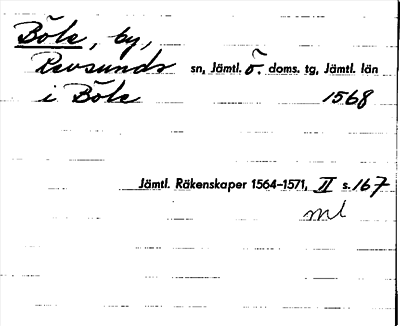 Böle, by,
Revsunds sn, Jämtl. ö. doms. tg, Jämtl. län
i Böle 1568
Jämtl. Räkenskaper 1564–1571, II s. 167
ml